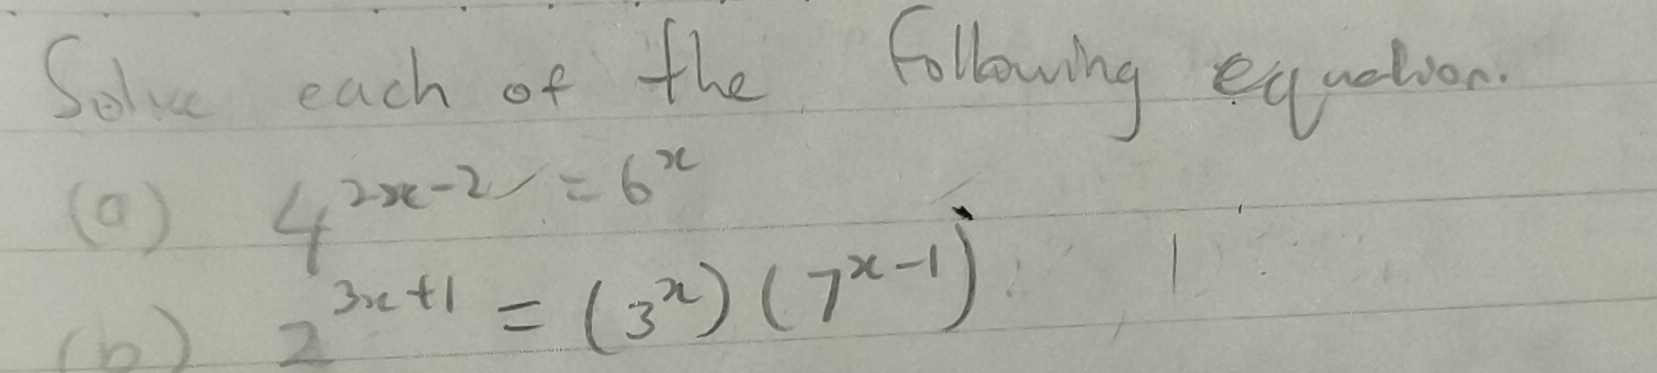 Solve each of the following equation.
(a) 4^{2x-2} = 6^x
(b) 2^{3x+1} = (3^x)(7^{x-1})